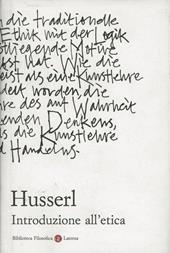 n die traditionelle
Ethik mit der Logik
liegende Motive
hat. Wie die
ist als eine Kunstlehre
deit worden die
re des auf Wahrheit
enden Denkens,
die Kunstlehre
Handelns.
Husserl
Introduzione all'etica
Biblioteca Filosofica Laterza